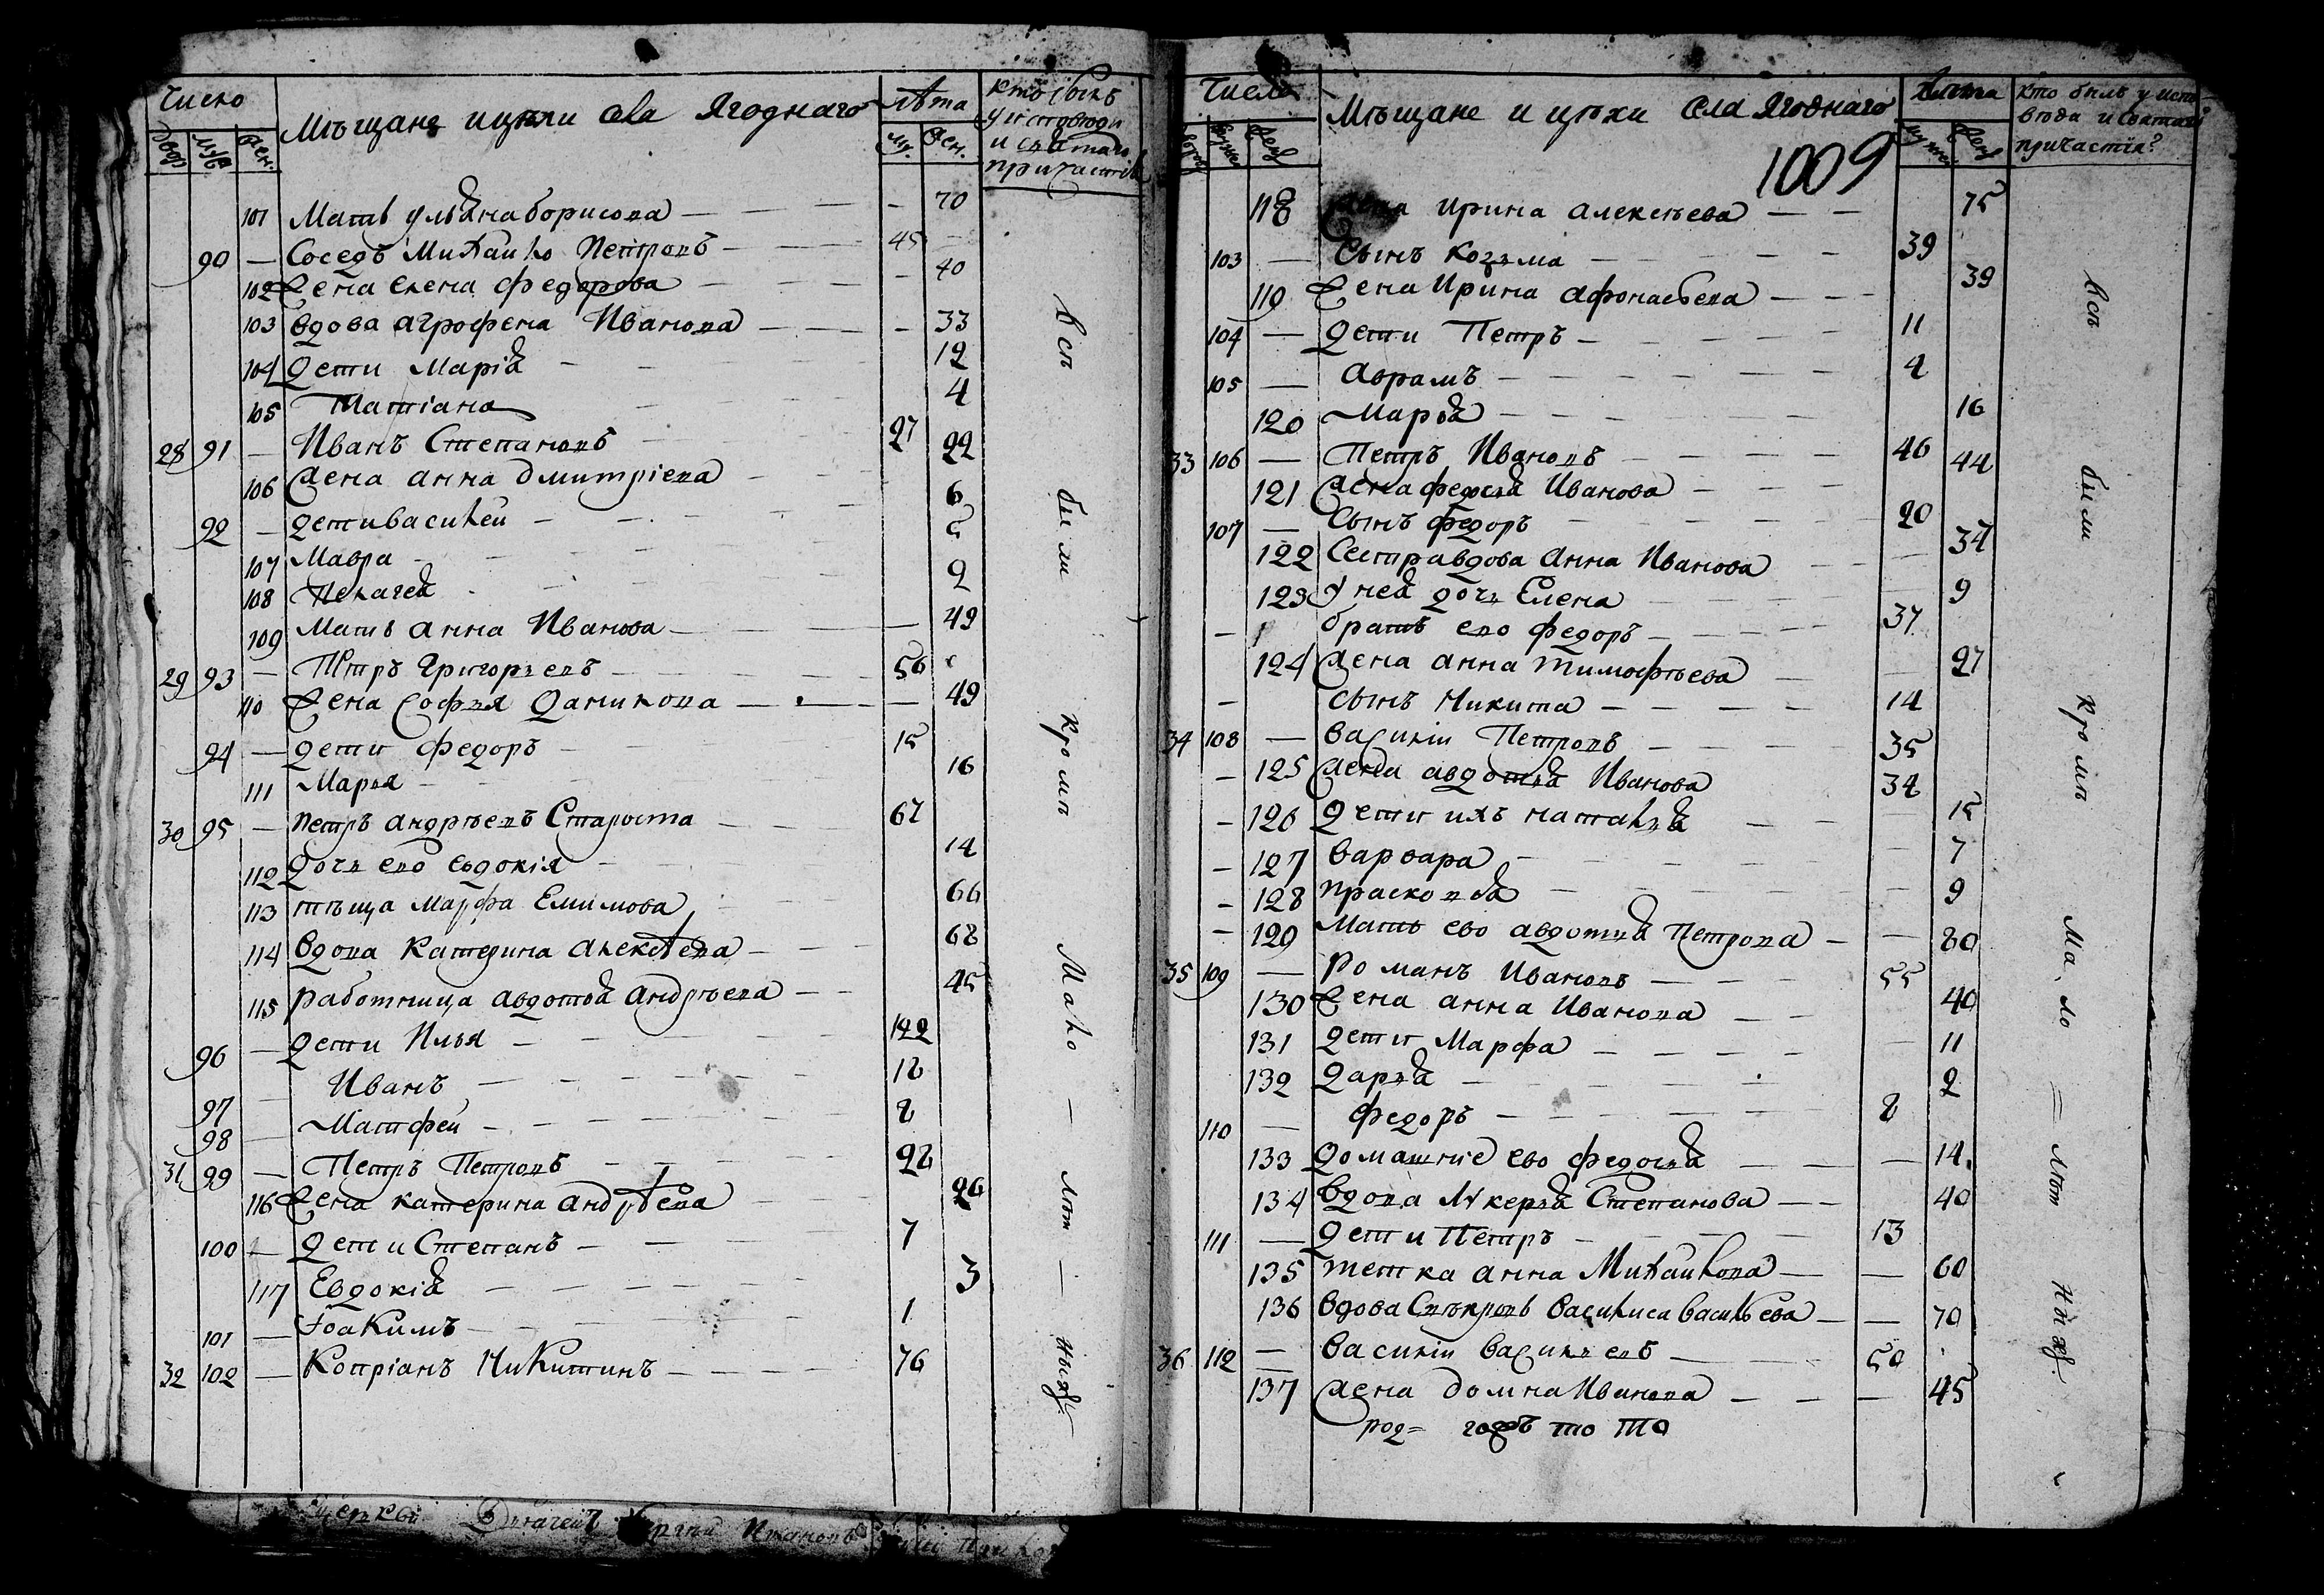 Число
Мѣщане и цѣхи села Ягоднаго
лѣта
кто былъ
у исповѣди
и святаго
причастія
двор
муж
жен.
му.
жен.
101 Мать ульяна борисова — — — — 70
90 — Соседъ Михайло Петровъ — — — 45 —
102 Жена елена федорова — — — — 40
103 вдова агрофена Иванова — — — — 33
104 дети Марія — — 12
105 Татіана — 4
28 91 — Иванъ Степановъ — 27
106 жена анна дмитріева — — 22
92 — дети василей — — — 6
107 Мавра — — 5
108 Пелагея — — 2
109 Мать анна Иванова — — — — 49
29 93 — Петръ Григорьевъ — — — 56
110 Жена Софья Данилова — — — — 49
94 — дети федоръ — — 15
111 Марья — — 16
30 95 — Петръ андрѣевъ Староста — — — 67
112 дочь ево евдокія — — 14
113 тѣща Марфа Емимова — — 66
114 вдова Катерина алексѣева — — — 68
115 работница авдотья андрѣева — — 45
96 — дети Илья — — — 142
97 — Иванъ — — — — 18
98 — Матфей — — — — 8
31 99 — Петръ Петровъ — — — — 28
116 Жена катерина андрѣева — — 26
100 — дети Степанъ — — — 7
117 Евдокія — — — — 3
101 — Іоакимъ — — — 1
32 102 — Копріанъ Никитинъ — — — — 76
всѣ были кромѣ Мало — лѣт — ныхъ
Числа
Мѣщане и цѣхи села Ягоднаго
Лѣта
кто былъ у испо
вѣда и святаго
причастія?
1009
118 жена Ирина алексѣева — — 75
103 — Сынъ козьма — — — — 39
119 Жена Ирина афонасьева — — — 39
104 — дети Петръ — — — — 11
105 — аврамъ — — — — 4
120 Марья — — — — 16
33 106 — Петръ Ивановъ — — — — 46
121 жена федосья Иванова — — — 44
107 — Сынъ федоръ — — — 20
122 Сестра вдова Анна Иванова — — — 34
123 У нея дочь Елена — — — 9
— братъ ево федоръ — — — — 37
124 жена анна тимофѣева — — 27
— сынъ Никита — — — — 14
34 108 — василій Петровъ — — — 35
— 125 жена авдотья Иванова 34
— 126 дети ихъ наталья — — — 15
— 127 варвара — — — — 7
— 128 прасковья — — — — 9
— 129 Мать ево авдотья Петрова — — 80
35 109 — Романъ Ивановъ — — — 55
130 Жена анна Иванова — — 40
131 дети Марфа — — — — 11
132 дарья — — — 2
110 — федоръ — — — — 8
133 домашніе ево федосья — — — 14.
134 вдова Лукерья Степанова — — 40
111 — дети Петръ — — — 13
135 тетка анна Михайлова — — 60
136 вдова Свѣкровь василиса васильева — — 70
36 112 — василій васильевъ — — 50
137 жена домна Иванова — — — 45
род= годъ то то
всѣ были кромѣ Мало = лѣт ныхъ
церкви Иванов